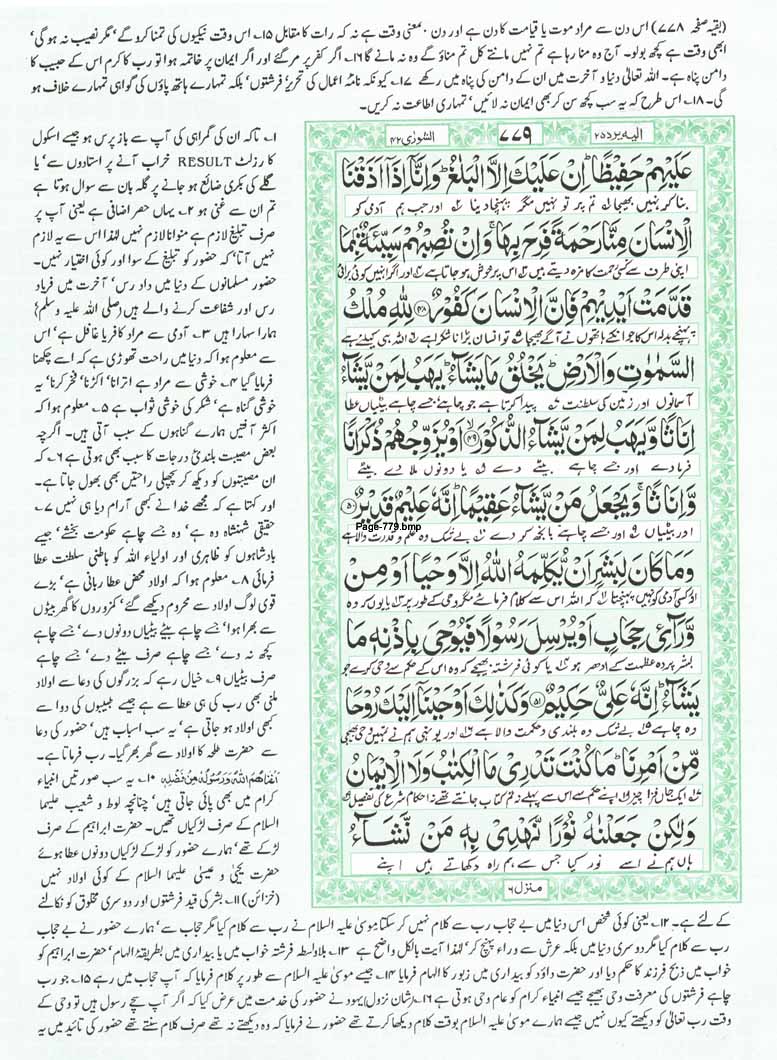 (بقیہ صفحہ ۷۷۸) اس دن سے مراد موت یا قیامت کا دن ہے اور دن ۔معنی وقت ہے نہ کہ رات کا مقابل ۱۵؎ اس وقت نیکیوں کی تمنا کرو گے' مگر نصیب نہ ہو گی'
ابھی وقت ہے کچھ بولو۔ آج وہ منا رہا ہے تم نہیں مانتے کل تم مناؤ گے وہ نہ مانے گا ۱۶؎ اگر کفر پر مر گئے اور اگر ایمان پر خاتمہ ہوا تو رب کا کرم اس کے حبیب کا
دامن پناہ ہے۔ اللہ تعالیٰ دنیا و آخرت میں ان کے دامن کی پناہ میں رکھے ۱۷؎ کیونکہ نامۂ اعمال کی تحریر' فرشتوں' بلکہ تمہارے ہاتھ پاؤں کی گواہی تمہارے خلاف ہو
گی۔ ۱۸؎ اس طرح کہ یہ سب کچھ سن کر بھی ایمان نہ لائیں' تمہاری اطاعت نہ کریں۔
الیہ یرد ۲۵
۷۷۹
الشورٰی ۴۲
عَلَیْهِمْ حَفِیْظًا ؕ اِنْ عَلَیْكَ اِلَّا الْبَلٰغُ ؕ وَ اِنَّاۤ اِذَاۤ اَذَقْنَا
بنا کر نہیں بھیجا تم پر تو نہیں مگر پہنچا دینا اور جب ہم آدمی کو
الْاِنْسَانَ مِنَّا رَحْمَةً فَرِحَ بِهَا ۚ وَ اِنْ تُصِبْهُمْ سَیِّئَةٌۢ بِمَا
اپنی طرف سے کسی رحمت کا مزہ دیتے ہیں اس پر خوش ہو جاتا ہے اور اگر انہیں کوئی برائی
قَدَّمَتْ اَیْدِیْهِمْ فَاِنَّ الْاِنْسَانَ كَفُوْرٌ ﴿۴۸﴾ لِلّٰهِ مُلْكُ
پہنچے بدلہ اس کا جو انکے ہاتھوں نے آگے بھیجا تو انسان بڑا ناشکرا ہے اللہ ہی کیلئے ہے
السَّمٰوٰتِ وَ الْاَرْضِ ؕ یَخْلُقُ مَا یَشَآءُ ؕ یَهَبُ لِمَنْ یَّشَآءُ
آسمانوں اور زمین کی سلطنت پیدا کرتا ہے جو چاہے جسے چاہے بیٹیاں عطا
اِنَاثًا وَّ یَهَبُ لِمَنْ یَّشَآءُ الذُّكُوْرَ ﴿۴۹﴾ اَوْ یُزَوِّجُهُمْ ذُكْرَانًا
فرمائے اور جسے چاہے بیٹے دے یا دونوں ملا دے بیٹے
وَّ اِنَاثًا ۚ وَ یَجْعَلُ مَنْ یَّشَآءُ عَقِیْمًا ؕ اِنَّهٗ عَلِیْمٌ قَدِیْرٌ ﴿۵۰﴾
Page-779.bmp
اور بیٹیاں اور جسے چاہے بانجھ کر دے بے شک وہ علم و قدرت والا ہے
وَ مَا كَانَ لِبَشَرٍ اَنْ یُّكَلِّمَهُ اللّٰهُ اِلَّا وَحْیًا اَوْ مِنْ
اور کسی آدمی کو نہیں پہنچتا کہ اللہ اس سے کلام فرمائے مگر وحی کے طور پر یا یوں کہ وہ
وَّرَآئِ حِجَابٍ اَوْ یُرْسِلَ رَسُوْلًا فَیُوْحِیَ بِاِذْنِهٖ مَا
بشر پردہ عظمت کے ادھر ہو یا کوئی فرشتہ بھیجے کہ وہ اس کے حکم سے وحی کرے جو
یَشَآءُ ؕ اِنَّهٗ عَلِیٌّ حَكِیْمٌ ﴿۵۱﴾ وَ كَذٰلِكَ اَوْحَیْنَاۤ اِلَیْكَ رُوْحًا
وہ چاہے بے شک وہ بلندی و حکمت والا ہے اور یونہی ہم نے تمہیں وحی بھیجی
مِّنْ اَمْرِنَا ؕ مَا كُنْتَ تَدْرِیْ مَا الْكِتٰبُ وَ لَا الْاِیْمَانُ
ایک جاں فزا چیز اپنے حکم سے اس سے پہلے نہ تم کتاب جانتے تھے نہ احکام شرع کی تفصیل
وَ لٰكِنْ جَعَلْنٰهُ نُوْرًا نَّهْدِیْ بِهٖ مَنْ نَّشَآءُ
ہاں ہم نے اسے نور کیا جس سے ہم راہ دکھاتے ہیں اپنے
منزل ۶
۱؎ تاکہ ان کی گمراہی کی آپ سے باز پرس ہو جیسے اسکول
کا رزلٹ RESULT خراب آنے پر استادوں سے' یا
گلے کی بکری ضائع ہو جانے پر گلہ بان سے سوال ہوتا ہے
تم ان سے غنی ہو ۲؎ یہاں حصر اضافی ہے یعنی آپ پر
صرف تبلیغ لازم ہے منوانا لازم نہیں لہٰذا اس سے یہ لازم
نہیں آتا' کہ حضور کو تبلیغ کے سوا اور کوئی اختیار نہیں۔
حضور مسلمانوں کے دنیا میں داد رس' آخرت میں فریاد
رس اور شفاعت کرنے والے ہیں (صلی اللہ علیہ وسلم)
ہمارا سہارا ہیں ۳؎ آدمی سے مراد کافر یا غافل ہے' اس
سے معلوم ہوا کہ دنیا میں راحت تھوڑی ہے کہ اسے چکھنا
فرمایا گیا ۴؎ خوشی سے مراد ہے اترانا' اکڑنا' فخر کرنا' یہ
خوشی گناہ ہے' شکر کی خوشی ثواب ہے ۵؎ معلوم ہوا کہ
اکثر آفتیں ہمارے گناہوں کے سبب آتی ہیں۔ اگرچہ
بعض مصیبت بلندیٔ درجات کا سبب بھی ہوتی ہے ۶؎ کہ
ان مصیبتوں کو دیکھ کر پچھلی راحتیں بھی بھول جاتا ہے۔
اور کہتا ہے کہ مجھے خدا نے کبھی آرام دیا ہی نہیں ۷؎
حقیقی شہنشاہ وہ ہے' وہ جسے چاہے حکومت بخشے' جیسے
بادشاہوں کو ظاہری اور اولیاء اللہ کو باطنی سلطنت عطا
فرمائی ۸؎ معلوم ہوا کہ اولاد محض عطا ربانی ہے' بڑے
قوی لوگ اولاد سے محروم دیکھے گئے' کمزوروں کا گھر بیٹوں
سے بھرا ہوا' جسے چاہے بیٹے بیٹیاں دونوں دے' جسے چاہے
کچھ نہ دے' جسے چاہے صرف بیٹے دے' جسے چاہے
صرف بیٹیاں ۹؎ خیال رہے کہ بزرگوں کی دعا سے اولاد
ملنی بھی رب کی ہی عطا سے ہے جیسے طبیبوں کی دوا سے
کبھی اولاد ہو جاتی ہے' یہ سب اسباب ہیں' حضور کی دعا
سے حضرت طلحہ کا اولاد سے گھر بھر گیا۔ رب فرماتا ہے۔
اَغْنٰهُمُ اللّٰهُ وَ رَسُوْلُهٗ مِنْ فَضْلِهٖ ۱۰؎ یہ سب صورتیں انبیاء
کرام میں بھی پائی جاتی ہیں' چنانچہ لوط و شعیب علیہما
السلام کے صرف لڑکیاں تھیں۔ حضرت ابراہیم کے صرف
لڑکے تھے' ہمارے حضور کو لڑکے لڑکیاں دونوں عطا ہوئے
حضرت یحییٰ و عیسیٰ علیہما السلام کے کوئی اولاد نہیں
(خزائن) ۱۱؎ بشر کی قید فرشتوں اور دوسری مخلوق کو نکالنے
کے لئے ہے۔ ۱۲؎ یعنی کوئی شخص اس دنیا میں بے حجاب رب سے کلام نہیں کر سکتا' موسیٰ علیہ السلام نے رب سے کلام کیا مگر حجاب سے' ہمارے حضور نے بے حجاب
رب سے کلام کیا مگر دوسری دنیا میں بلکہ عرش سے وراء پہنچ کر' لہٰذا آیت بالکل واضح ہے ۱۳؎ بلاواسطہ فرشتہ خواب میں یا بیداری میں بطریقۂ الہام' حضرت ابراہیم کو
خواب میں ذبح فرزند کا حکم دیا اور حضرت داؤد کو بیداری میں زبور کا الہام فرمایا ۱۴؎ جیسے موسیٰ علیہ السلام سے طور پر کلام فرمایا کہ آپ حجاب میں رہے ۱۵؎ جو رب
چاہے فرشتوں کی معرفت وحی بھیجے جیسے انبیاء کرام کو عام وحی ہوتی ہے ۱۶؎ (شان نزول) یہود نے حضور کی خدمت میں عرض کیا کہ اگر آپ سچے رسول ہیں تو وحی کے
وقت رب تعالیٰ کو دیکھتے کیوں نہیں جیسے ہمارے موسیٰ علیہ السلام بوقت کلام دیکھا کرتے تھے حضور نے فرمایا کہ وہ دیکھتے نہ تھے صرف کلام سنتے تھے حضور کی تائید میں یہ